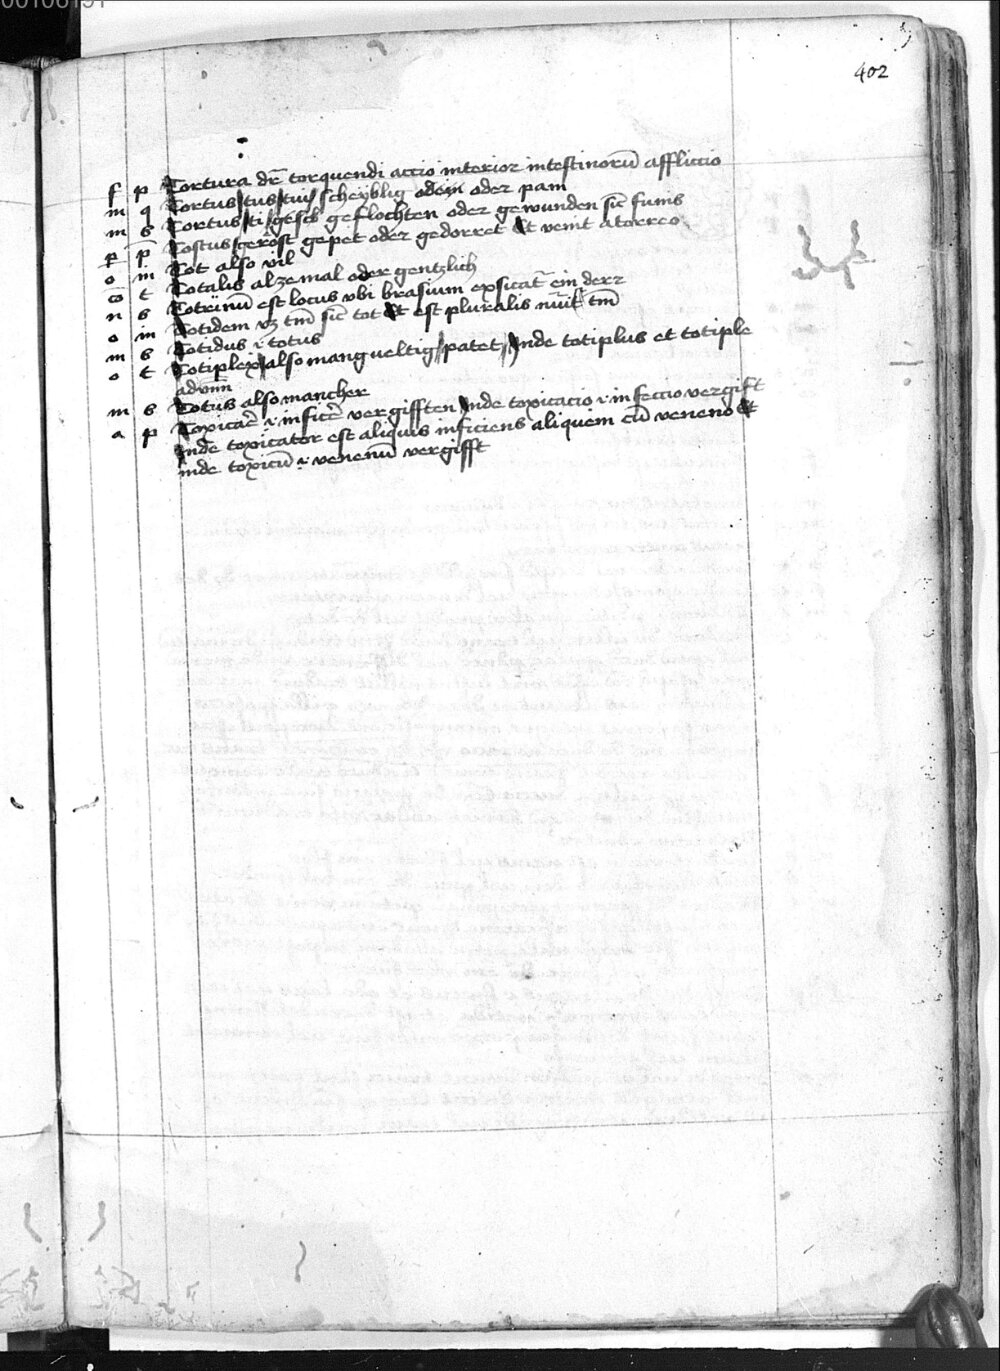 00106151
402
f p Tortura dr̄ torquendi accio interior intestinorū affliccio
m q Tortus tus tui scheyblig oder pam
m s Tortus ti gesch geflochten oder gewunden sic̄ funis
p p̄ Tostus geröst gepet oder gedorret Et venit a torreo
o in Tot also vil
cō t Totalis alzemal oder gentzlich
n s est locus vbi brasium exsicat̄ ein derr
o in Totidem tm̄ sic̄ tot Et est pluralis nūi tm̄
m s Totidus i totus
o t Totiplex also mangueltig patet Inde totiplus et totiple
m s Totus also mancher
a p Toxicar̄ i inficer̄ vergifften Inde toxicacio i infeccio vergift
Inde toxicator est aliquis inficiens aliquem cū veneno Et
inde toxicū i venenū vergifft